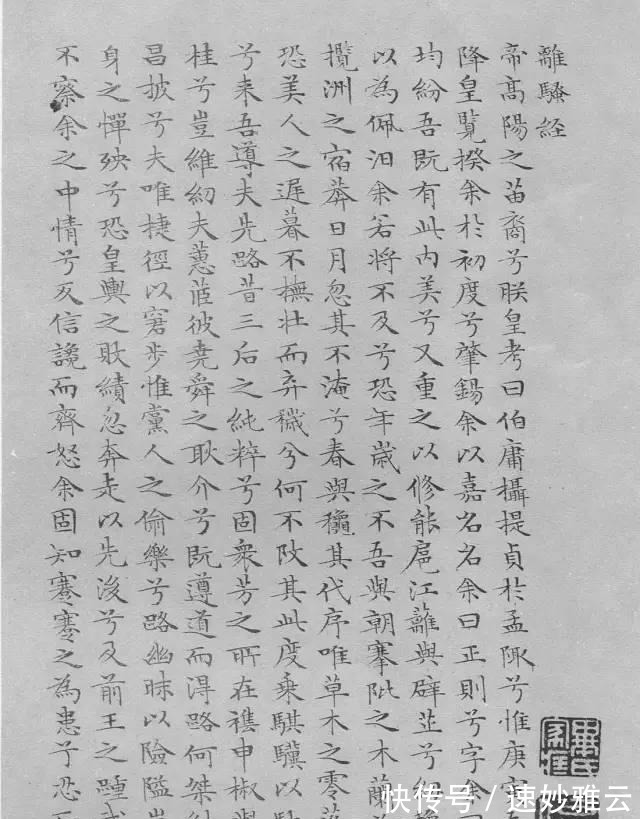 離騷経
帝高陽之苗裔兮朕皇考曰伯庸攝提貞於孟陬兮惟庚寅
降皇覽揆余於初度兮肇錫余以嘉名名余曰正則兮字余
均紛吾既有此內美兮又重之以修能扈江蘺與辟芷兮紉
以為佩汩余若將不及兮恐年歲之不吾與朝搴阰之木蘭
攬洲之宿莽日月忽其不淹兮春與穐其代序唯草木之零落
恐美人之遲暮不撫壯而弃穢兮何不改其此度乗騏驥以馳
兮来吾導夫先路昔三后之純粹兮固衆芳之所在雜申椒與
桂兮豈維紉夫蕙茝彼堯舜之耿介兮既遵道而得路何桀紂
昌披兮夫唯捷徑以窘步惟黨人之偷樂兮路幽昧以險隘豈
身之憚殃兮恐皇輿之敗績忽奔走以先後兮及前王之踵武
不察余之中情兮反信讒而齊怒余固知謇謇之為患兮忍
快传号 / 速妙雅云